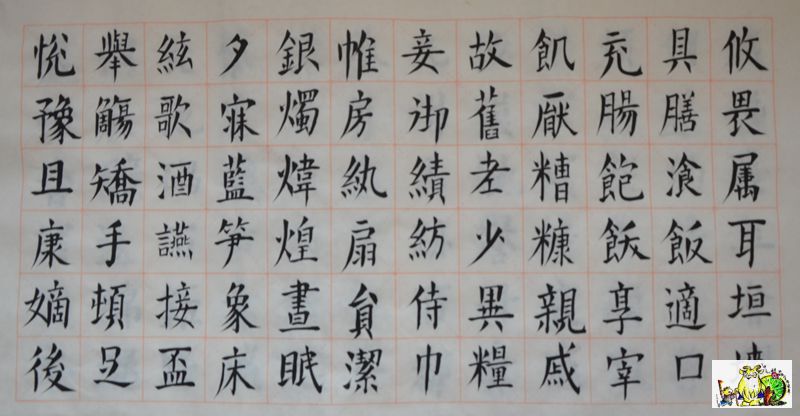 攸畏属耳垣
具膳飡飯適口
充腸飽飫享宰
飢厭糟糠親戚
故舊老少異糧
妾御績紡侍巾
帷房紈扇員潔
銀燭煒煌晝眠
夕寐藍笋象床
絃歌酒讌接盃
舉觴矯手頓足
悅豫且康嫡後